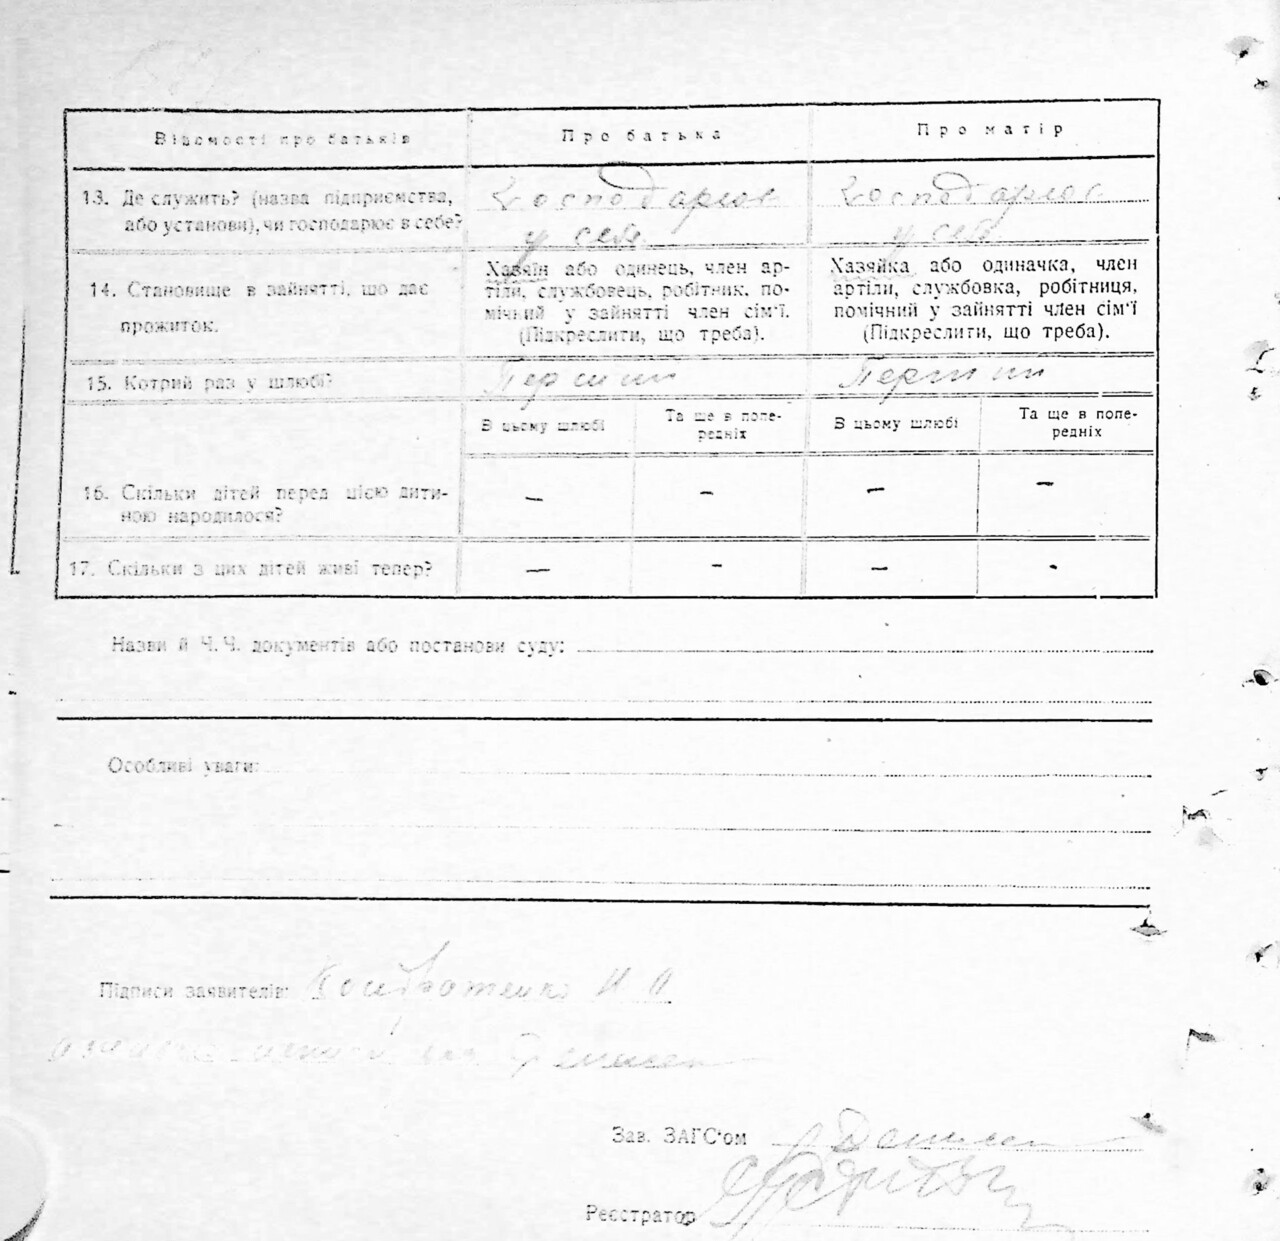 Відомості про батьків
Про батька
Про матір
13. Де служить? (назва підприємства,
або установи), чи господарює в себе?
Господарює
у себе
Господарює
у себе
14. Становище в зайнятті, що дає
прожиток.
Хазяїн або одинець, член ар-
тіли, службовець, робітник, по-
мічний у зайнятті член сім'ї.
(Підкреслити, що треба).
Хазяйка або одиначка, член
артіли, службовка, робітниця,
помічний у зайнятті член сім'ї
(Підкреслити, що треба).
15. Котрий раз у шлюбі?
Перший
Перший
В цьому шлюбі
Та ще в попе-
редніх
В цьому шлюбі
Та ще в попе-
редніх
16. Скільки дітей перед цією дити-
ною народилося?
— — — —
17. Скільки з цих дітей живі тепер?
— — —
Назви й Ч.Ч. документів або постанови суду:
Особливі уваги:
Підписи заявителів: Кондратенко И П
Зав. ЗАГС'ом
Реєстратор